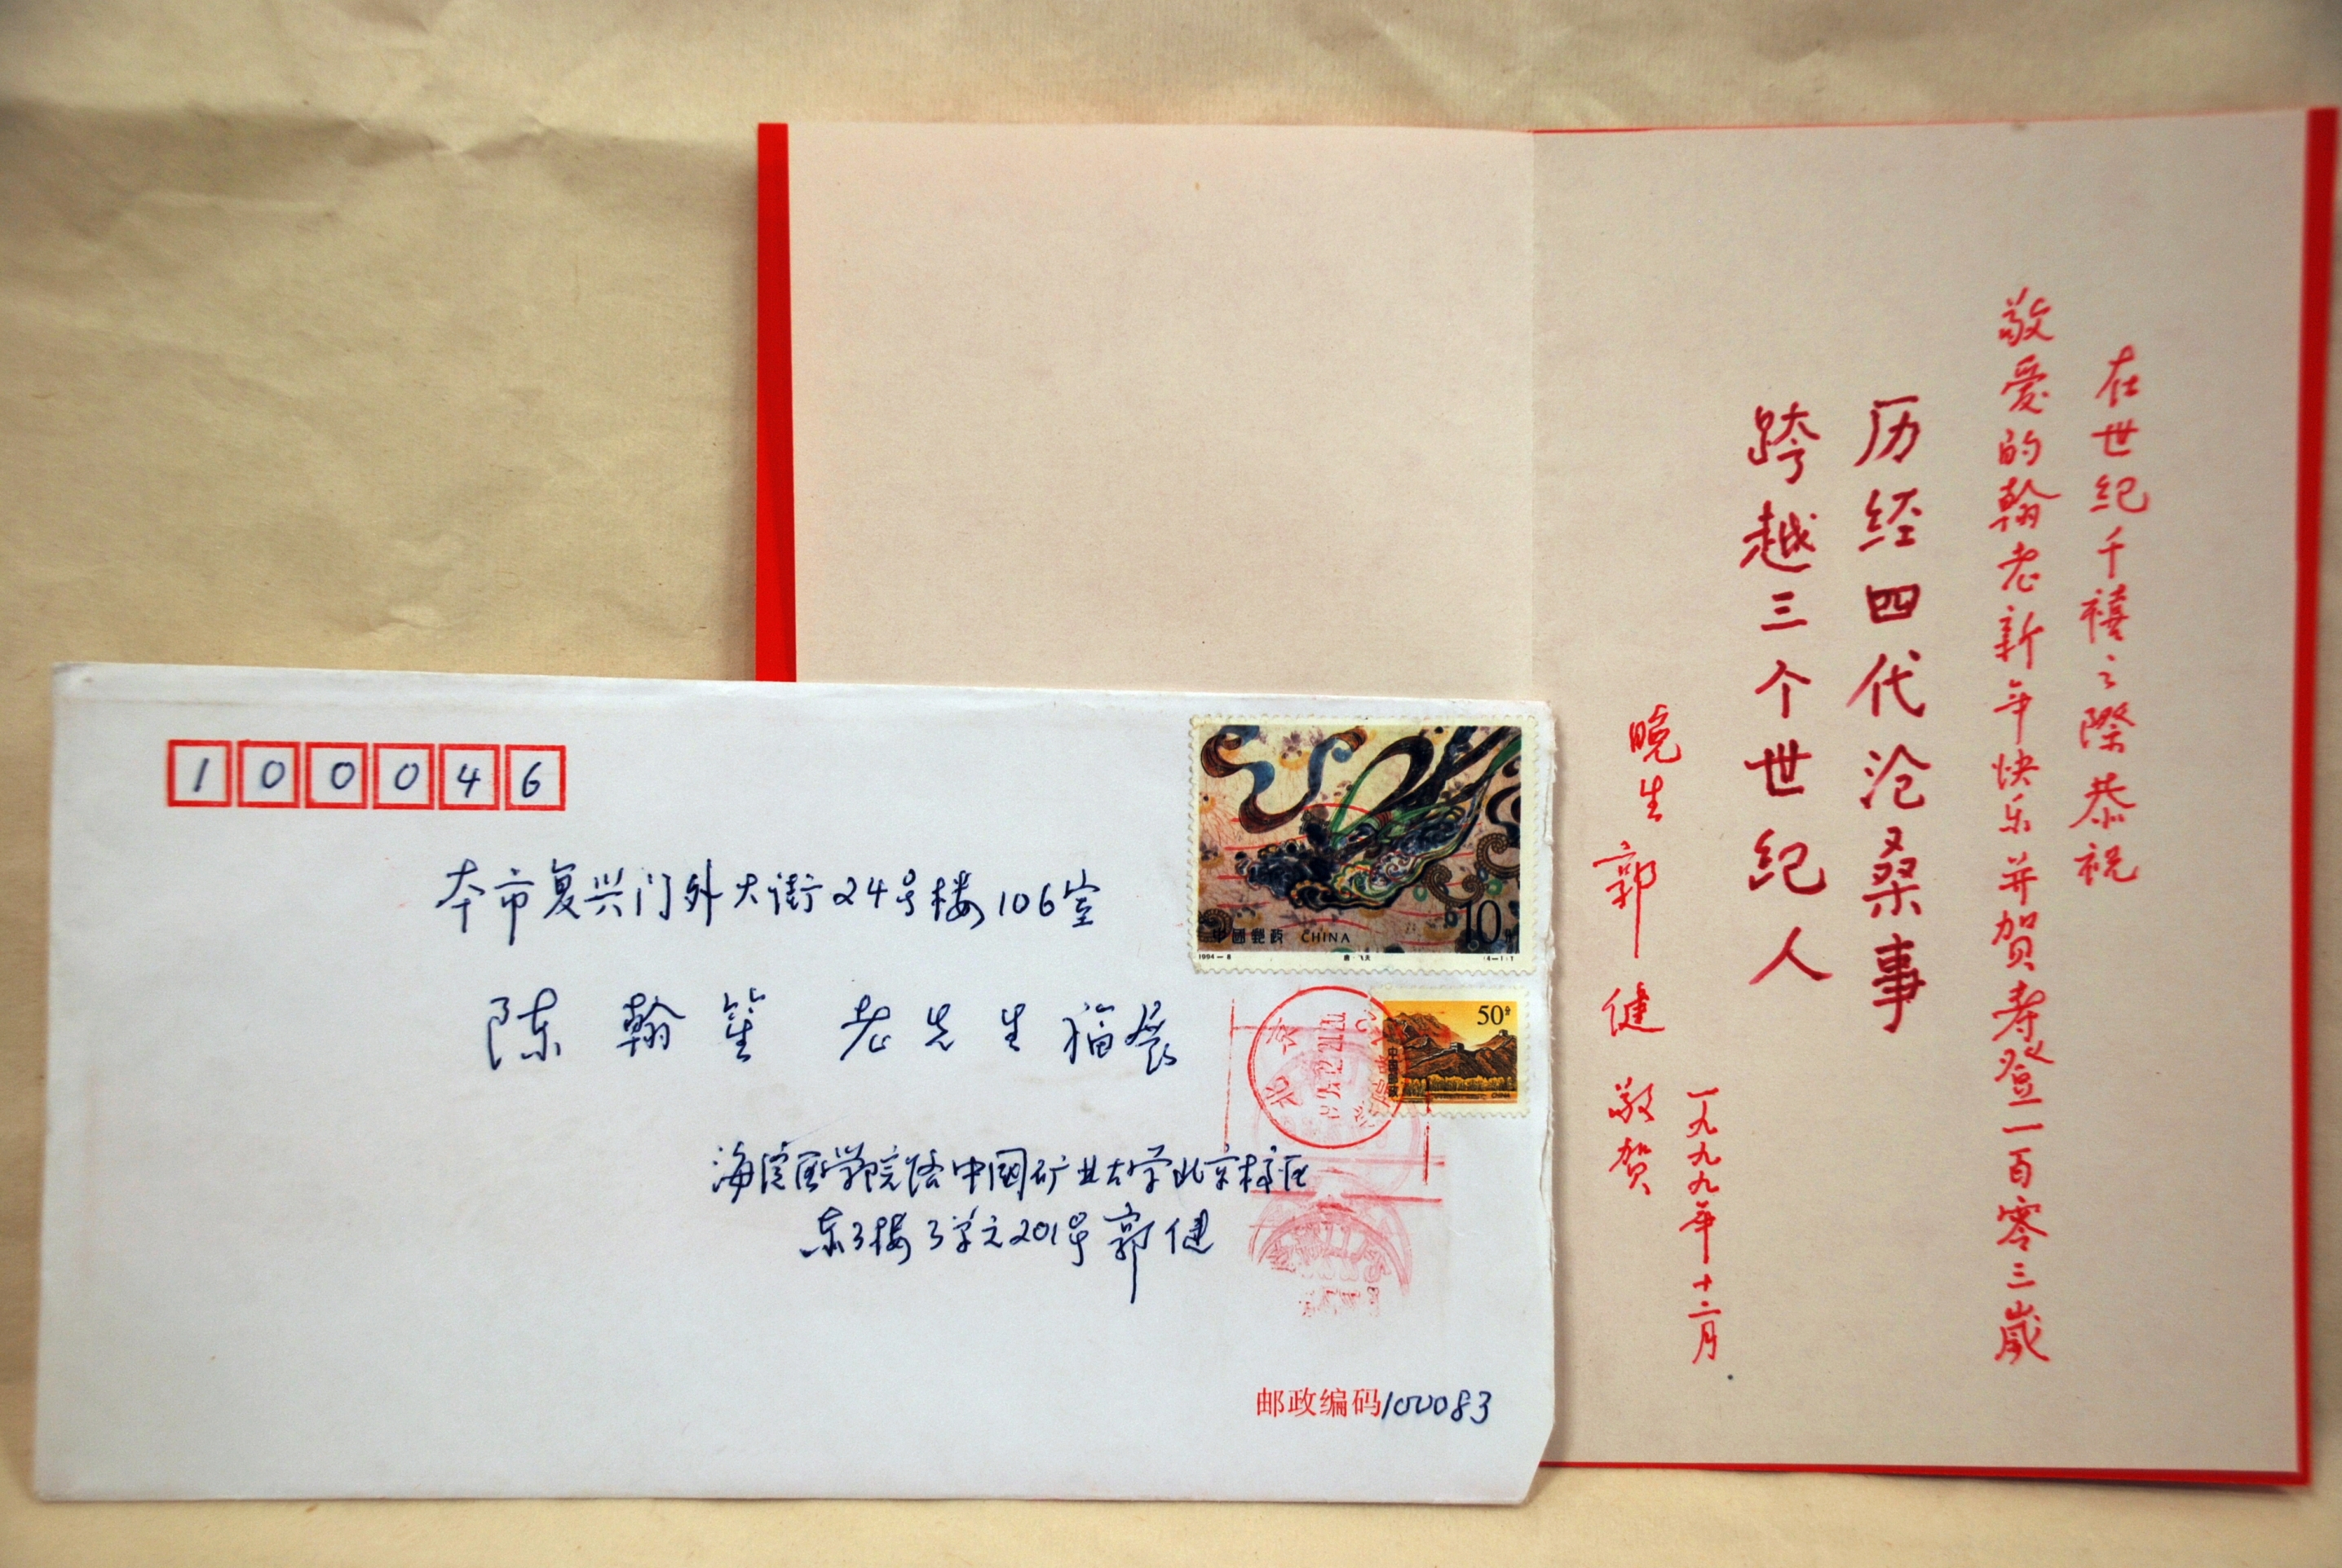 100046
本市复兴门外大街24号楼106室
陈翰笙 老先生福展
海淀区学院路中国矿业大学北京校区
东3楼3单元201号郭健
邮政编码100083
中國郵政 CHINA
10分
1994-8
唐·飞天
(4-1)T
50分
CHINA
北京
在世纪千禧之際恭祝
敬爱的翰老新年快乐并贺寿登一百零三歲
历经四代沧桑事
跨越三个世纪人
晚生郭健敬贺
一九九九年十二月